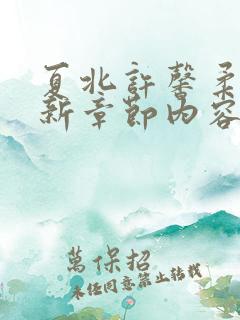 夏北許馨柔
新章節內容
萬保招
未经同意禁止转载